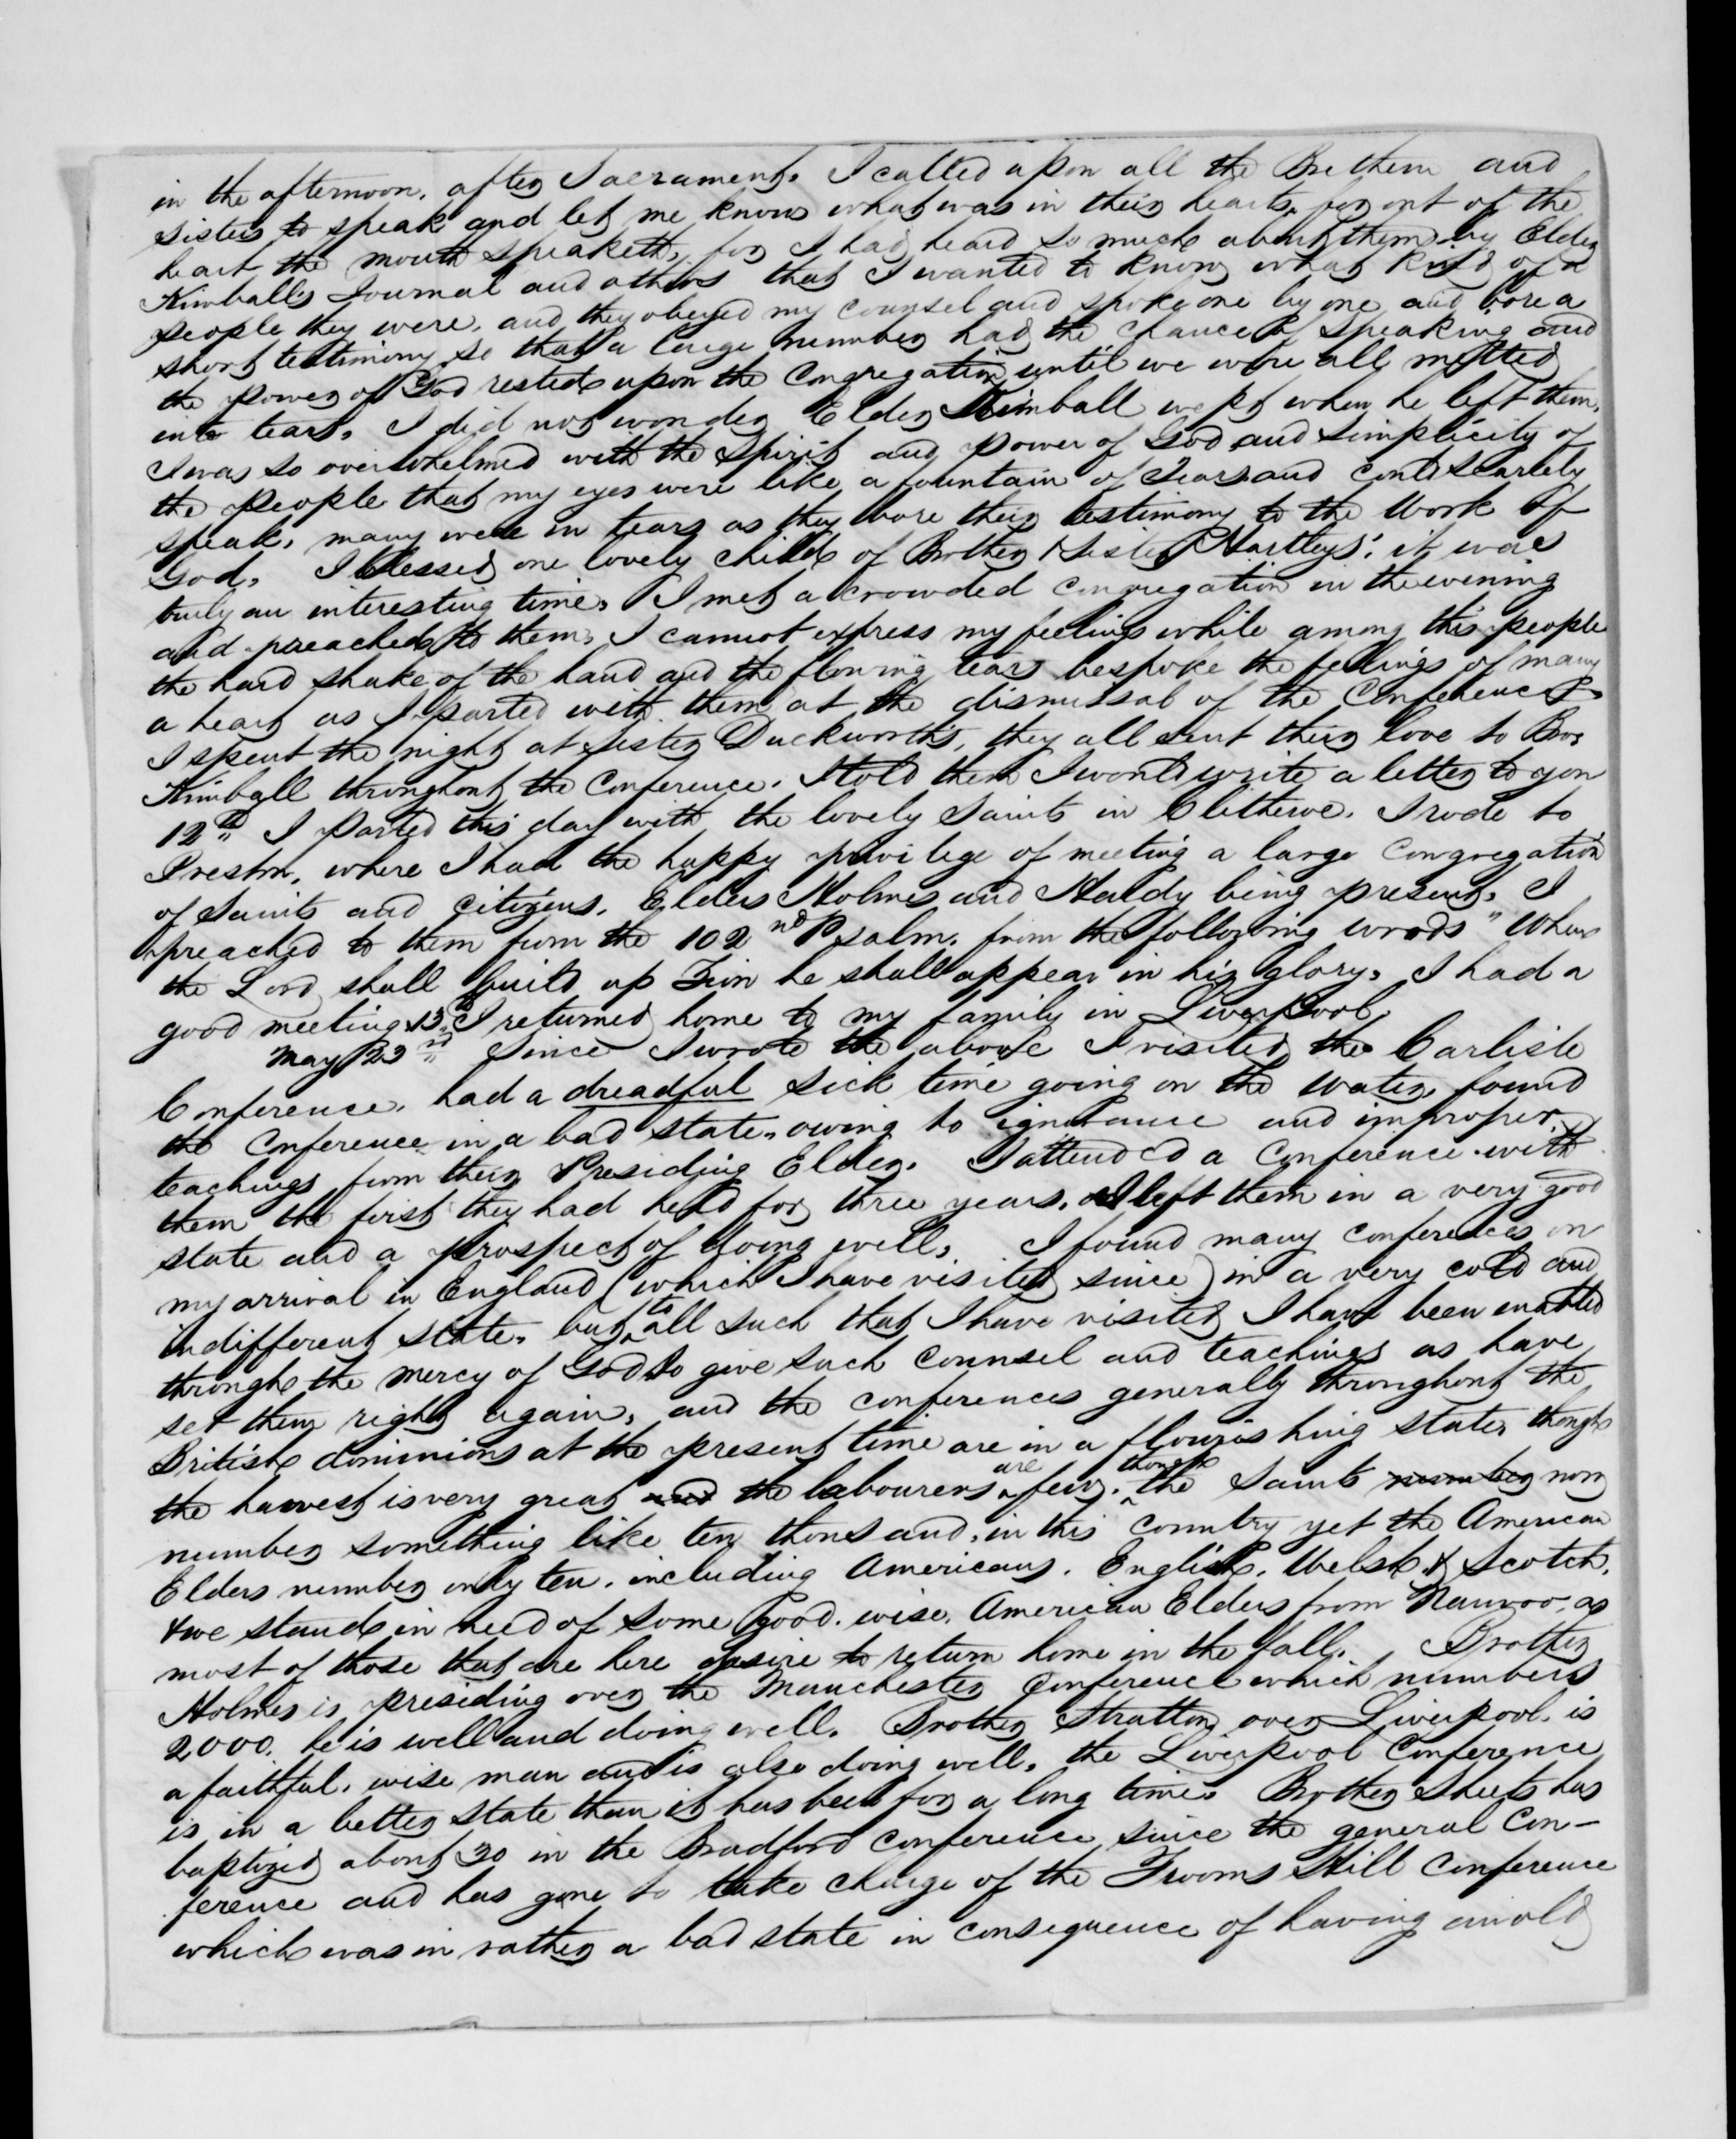 in the afternoon. after Sacrament. I called upon all the Brethern and
sisters to speak and let me know what was in their hearts. for out of the
heart the mouth speaketh, for I had heard so much about them by Elder
Kimballs Journal and others that I wanted to know what kind of a
people they were. and they obeyed my counsel and spoke one by one and bore a
short testimony so that a large number had the chance of speaking and
the power of God rested upon the Congregation until we were all melted
into tears. I did not wonder Elder Kimball wept when he left them.
I was so overwhelmed with the spirit and power of God and simplicity of
the people that my eyes were like a fountain of tears and could scarcely
speak. many were in tears as they bore their testimony to the work of
God. I blessed one lovely child of Brother & Sister Hartleys'. it was
truly an interesting time. I met a crowded congregation in the evening
and preached to them. I cannot express my feelings while among this people
the hard shake of the hand and the flowing tears bespoke the feelings of many
a heart as I parted with them at the dismissal of the Conference.
I spent the night at Sister Duckworths, they all sent their love to Bro.
Kimball throughout the Conference. I told them I would write a letter to you
12th I parted this day with the lovely Saints in Clitheroe. I rode to
Preston, where I had the happy privilege of meeting a large Congregation
of Saints and citizens. Elders Holmes and Hardy being present. I
preached to them from the 102nd Psalm. from the following words "When
the Lord shall build up Zion he shall appear in his glory. I had a
good meeting. 13th I returned home to my family in Liverpool.
May 23rd Since I wrote the above I visited the Carlisle
Conference. had a dreadful sick time going on the water, found
the Conference in a bad state. owing to ignorance and improper
teachings from their Presiding Elder. I attended a Conference with
them the first they had held for three years. I left them in a very good
state and a prospect of doing well. I found many conferences on
my arrival in England (which I have visited since) in a very cold and
indifferent state. but to all such that I have visited I have been enabled
through the mercy of God to give such counsel and teachings as have
set them right again. and the conferences generally throughout the
British dominions at the present time are in a flourishing state, though
the harvest is very great and the labourers are few. though the Saints number now
number something like ten thousand, in this country yet the American
Elders number only ten. including Americans. English. Welsh & Scotch.
& we stand in need of some good. wise. American Elders from Nauvoo, as
most of those that are here desire to return home in the fall. Brother
Holmes is presiding over the Manchester Conference which numbers
2,000. he is well and doing well. Brother Stratton over Liverpool. is
a faithful. wise man and is also doing well. the Liverpool Conference
is in a better state than it has been for a long time. Brother Sheets has
baptized about 30 in the Bradford Conference since the general Con-
ference and has gone to take charge of the Frooms Hill Conference
which was in rather a bad state in consequence of having an old